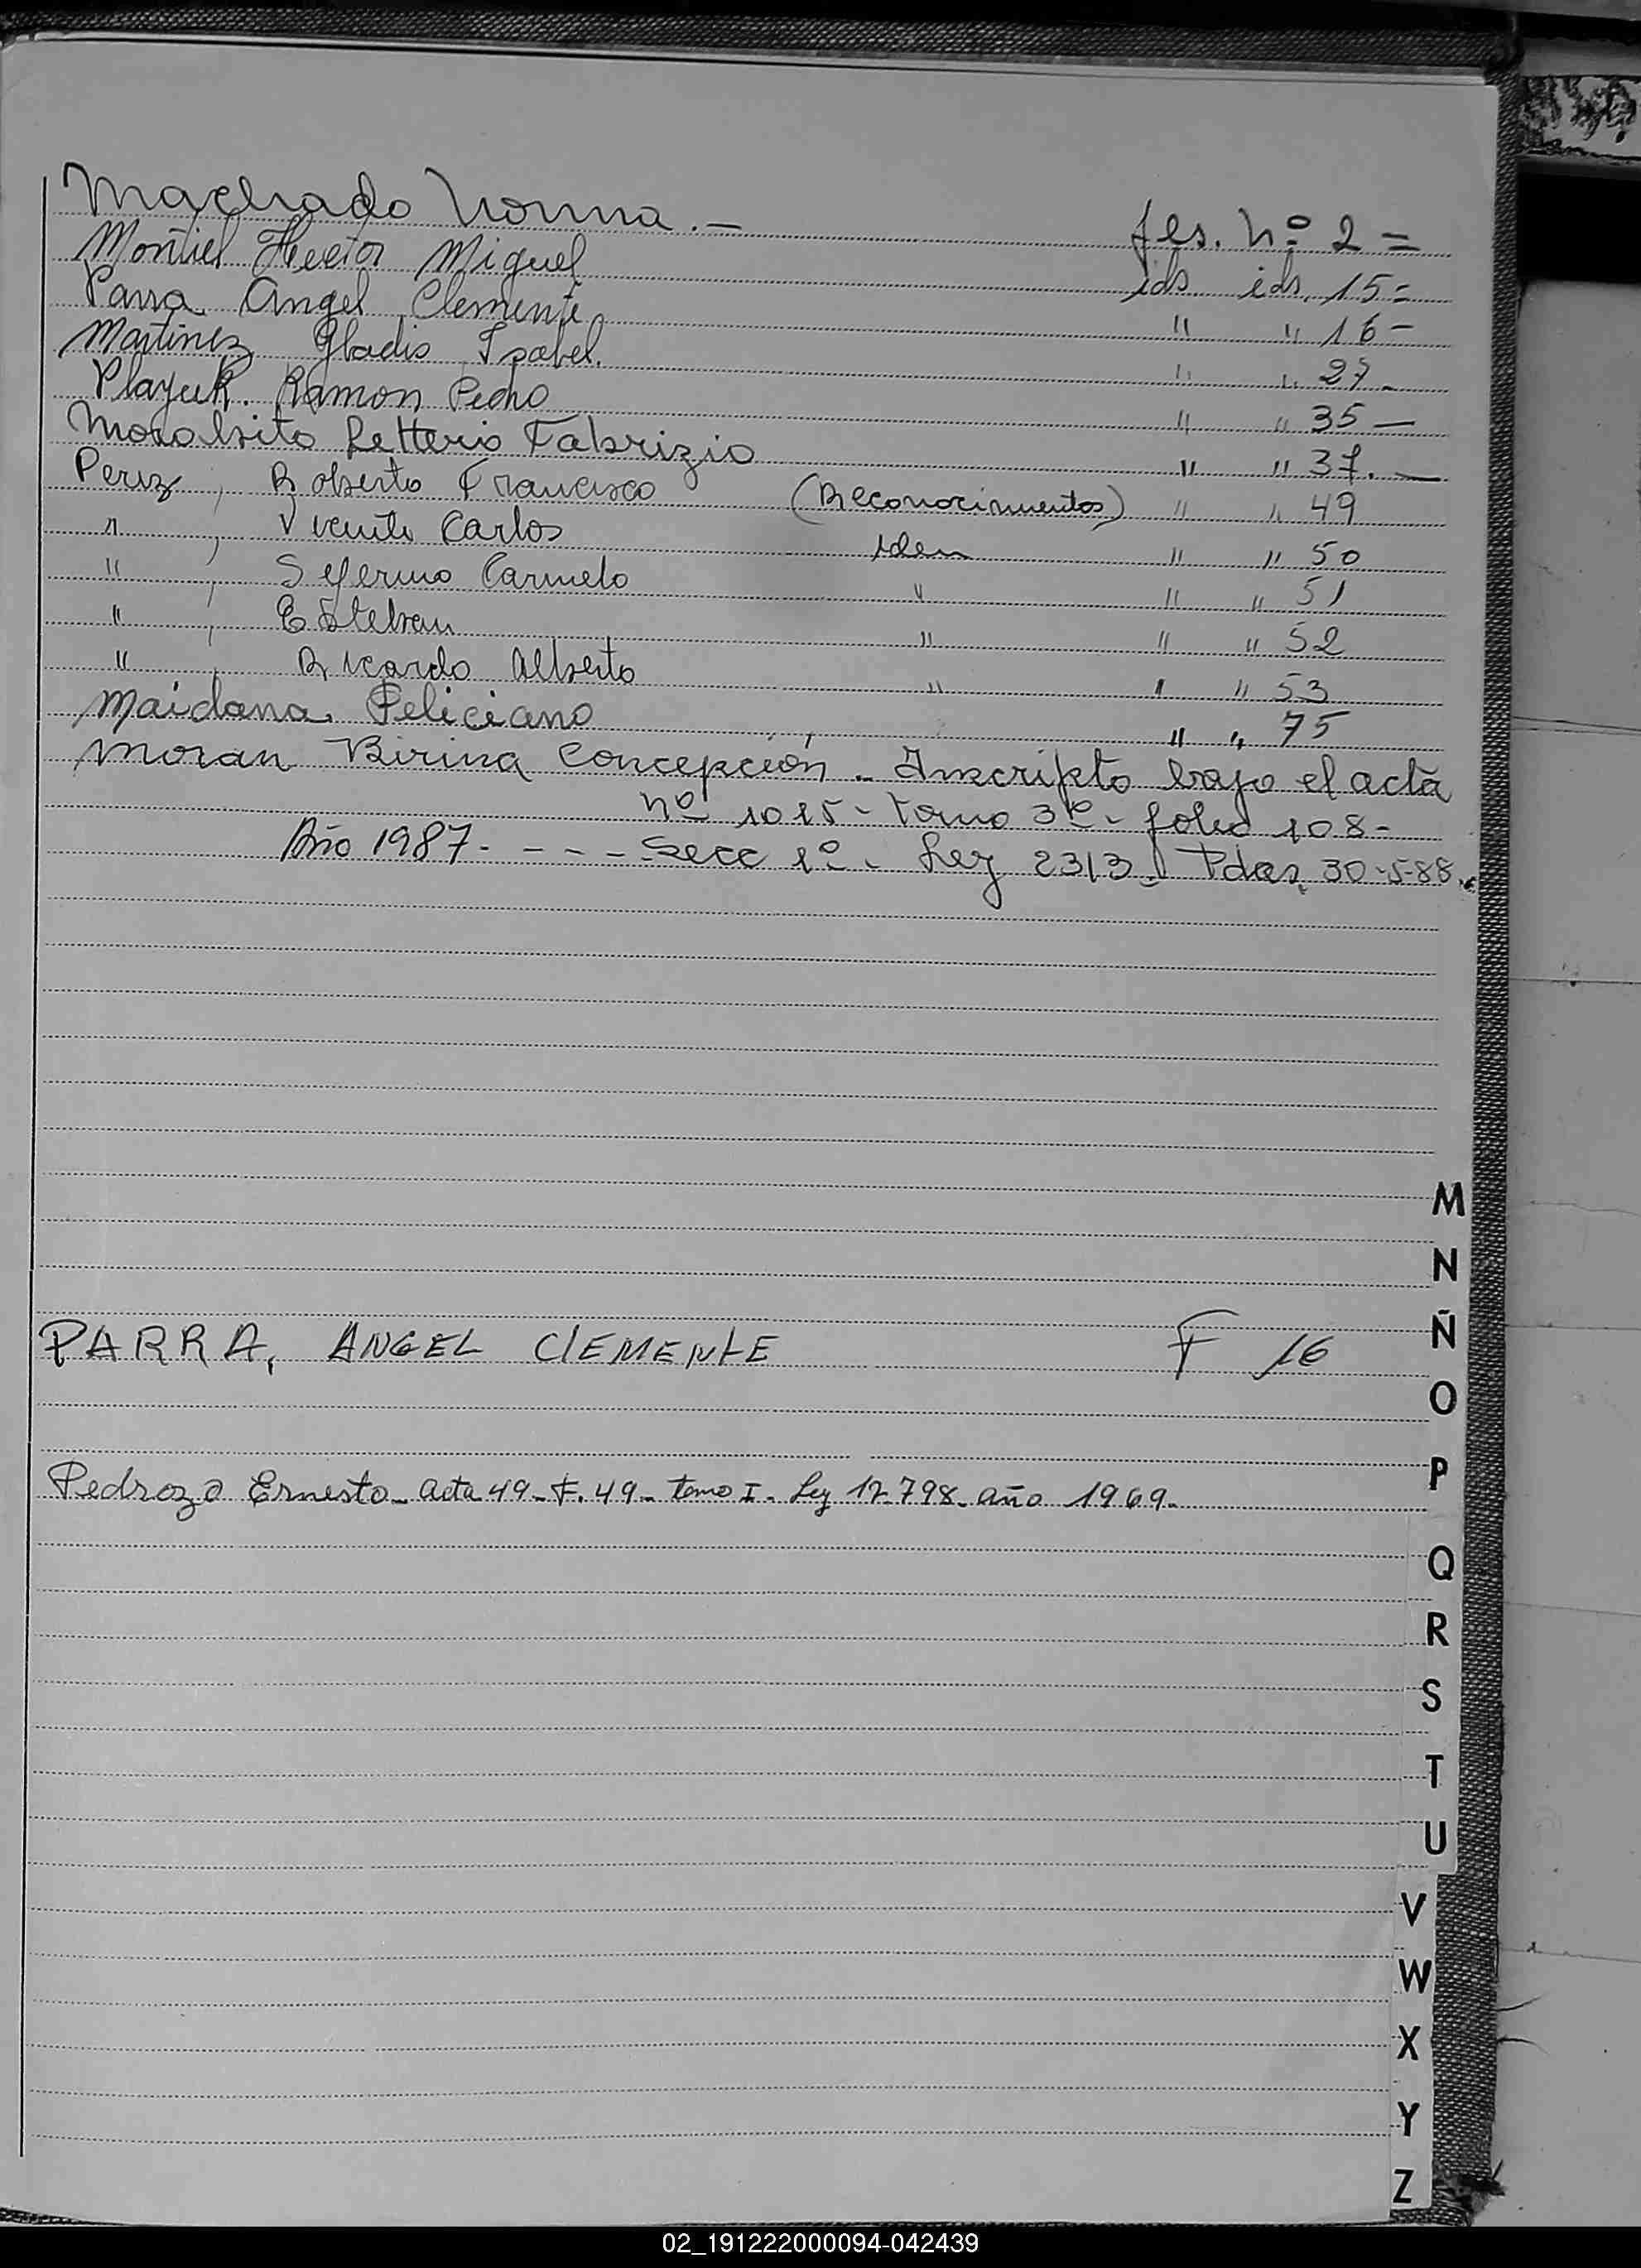 Machado Norma.— fls. Nº 2=
Montiel Hector Miguel ids. ids. 15=
Parra Angel Clemente " " 16-
Martinez Gladis Isabel. " " 27-
Playuk. Ramon Pedro " " 35—
Letterio Fabrizio " " 37.—
Perez, Roberto Francisco (Reconocimientos) " " 49
" , Vicente Carlos Idem " " 50
" , Seferino Carmelo " " " 51
" , Esteban " " " 52
" , Ricardo Alberto " " " 53
Maidana, Feliciano " " 75
Moran Birina Concepción - Inscripto bajo el acta
Nº 1015- tomo 3º- folio 108-
Año 1987. - - - - Secc 1º- Ley 2313- Pdas, 30-5-88.
M
N
PARRA, ANGEL CLEMENTE F 16
Ñ
O
P
Pedrozo Ernesto- acta 49- F. 49- tomo I- Ley 17.798- año 1969-
Q
R
S
T
U
V
W
X
Y
Z
02_191222000094-042439